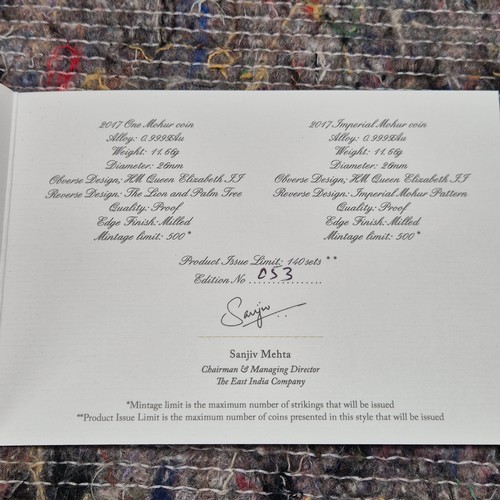 2017 One Mohur coin
Alloy: 0.9999Au
Weight: 11.66g
Diameter: 26mm
Obverse Design; HM Queen Elizabeth II
Reverse Design: The Lion and Palm Tree
Quality: Proof
Edge Finish: Milled
Mintage limit: 500*
2017 Imperial Mohur coin
Alloy: 0.9999Au
Weight: 11.66g
Diameter: 26mm
Obverse Design; HM Queen Elizabeth II
Reverse Design: Imperial Mohur Pattern
Quality: Proof
Edge Finish: Milled
Mintage limit: 500*
Product Issue Limit: 140sets **
Edition No 053
Sanjiv
Sanjiv Mehta
Chairman & Managing Director
The East India Company
*Mintage limit is the maximum number of strikings that will be issued
**Product Issue Limit is the maximum number of coins presented in this style that will be issued